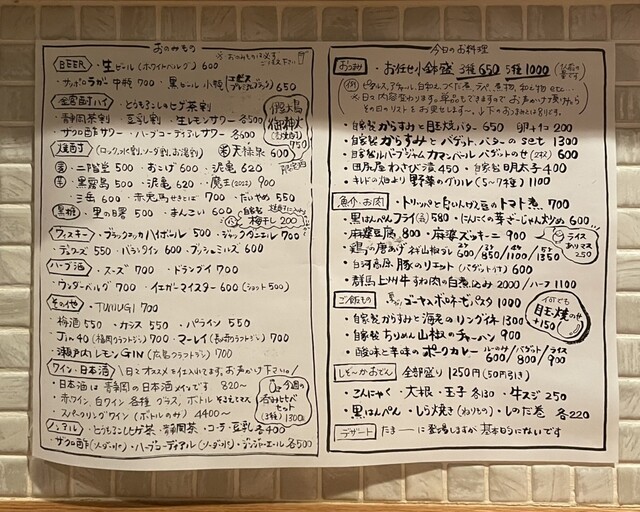 おのみもの
BEER ・生ビール(ホワイトベルグ) 600
・サッポロラガー中瓶 700 ・黒ビール小瓶 650
・とうもろこしのヒゲ茶割
・静岡茶割 ・豆乳割 ・生レモンサワー 各500
・ザクロ酢サワー ・ハーブコーディアルサワー
750
焼酎 (ロック、水割、ソーダ割、お湯割) 天使の誘惑 600
・二階堂 500 ・おこげ 600 ・泥亀 620
・黒霧島 500 ・泥亀 620 ・魔王(2022) 900
・三岳 600 ・赤兎馬 700 ・だいやめ 550
黒糖 ・里の曙 500 ・まんこい 600
自家製 梅干し 200
ウィスキー ・ブラックニッカハイボール 500 ・ジャックダニエル 700
・デュワーズ 550 ・バランタイン 600 ・ブッシュミルズ 600
ハーブ酒 ・スーズ 700 ・ドランブイ 700
・ウンダーベルグ 700 ・イエガーマイスター 600 (ショット500)
その他 ・TUMUGI 700
・梅酒 550 ・カシス 550 ・パライソ 550
・Jin 40 (福岡クラフトジン) 700 ・マーレイ 700
・瀬戸内レモンGIN (広島クラフトジン) 700
ワイン・日本酒 日々オススメを仕入れてます。お声かけ下さい。
・日本酒は静岡の日本酒メインです 820〜
・赤ワイン、白ワイン各種 グラス、ボトル
・スパークリングワイン(ボトルのみ) 4400〜
今週の呑みくらべセット (3種) 1300
ノンアル ・とうもろこしヒゲ茶 ・静岡茶 ・コーラ ・豆乳 各400
・ザクロ酢(ソーダor水) ・ハーブコーディアル(ソーダor水) ・ジンジャーエール 各500
今日のお料理
おつまみ ・お任せ小鉢盛 3種 650 5種 1000
・自家製からすみと目玉焼バター 650
・自家製からすみとバゲット、バターのset 1300
・自家製ハーブジャムカマンベールバゲットのせ(2コ) 600
・田尻屋わさび漬 450 ・自家製明太子 400
・キレドの畑より野菜のグリル(5〜7種) 1100
魚介・お肉 ・トリッパと白いんげん豆のトマト煮 700
・黒はんぺんフライ 580 ・にんにくの芽ぎーじゃん炒め 600
・麻婆豆腐 800 ・麻婆ズッキーニ 900
ライスあります 250
・鶏の唐あげ 600/850/1100/1350
・白河高原豚のリエット(バゲット付) 600
・群馬上州牛すね肉の白煮込み 2000/ハーフ1100
ご飯もの ・ゴーヤボロネーゼパスタ 1000
何でも目玉焼のせ +150
・自家製からすみと海老のリングイネ 1300
・自家製ちりめん山椒のチャーハン 900
・酸味と辛味のポークカレー ルーのみ/バゲット/ライス 600/800/900
しぞ〜かおでん 全部盛り 1250円(50円引き)
・こんにゃく ・大根 ・玉子 各130 ・牛スジ 250
・黒はんぺん ・しらす焼き(ねりもの) ・しのだ巻 各220
デザート たま――に登場しますが基本的にないです